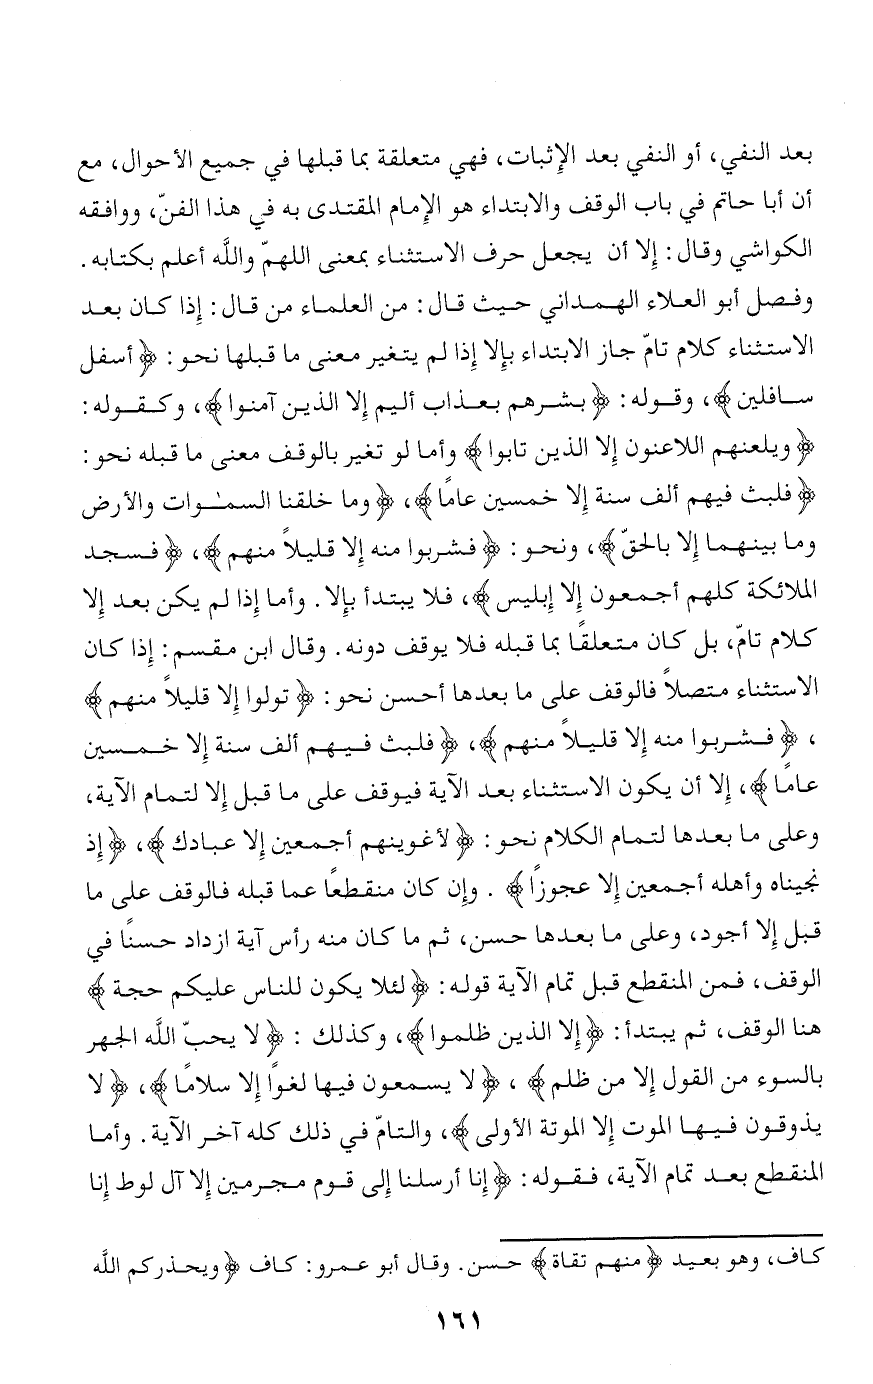 بعد النفي، أو النفي بعد الإثبات، فهي متعلقة بما قبلها في جميع الأحوال، مع
أن أبا حاتم في باب الوقف والابتداء هو الإمام المقتدى به في هذا الفنّ، ووافقه
الكواشي وقال: إلا أن يجعل حرف الاستثناء بمعنى اللهمّ والله أعلم بكتابه.
وفصل أبو العلاء الهمداني حيث قال: من العلماء من قال: إذا كان بعد
الاستثناء كلام تامّ جاز الابتداء بإلا إذا لم يتغير معنى ما قبلها نحو: ﴿أسفل
سافلين﴾، وقوله: ﴿بشرهم بعذاب أليم إلا الذين آمنوا﴾، وكقوله:
﴿ويلعنهم اللاعنون إلا الذين تابوا﴾ وأما لو تغير بالوقف معنى ما قبله نحو:
﴿فلبث فيهم ألف سنة إلا خمسين عامًا﴾، ﴿وما خلقنا السمٰوات والأرض
وما بينهما إلا بالحقّ﴾، ونحو: ﴿فشربوا منه إلا قليلاً منهم﴾، ﴿فسجد
الملائكة كلهم أجمعون إلا إبليس﴾، فلا يبتدأ بإلا. وأما إذا لم يكن بعد إلا
كلام تامّ، بل كان متعلقًا بما قبله فلا يوقف دونه. وقال ابن مقسم: إذا كان
الاستثناء متصلاً فالوقف على ما بعدها أحسن نحو: ﴿تولوا إلا قليلاً منهم﴾
، ﴿فشربوا منه إلا قليلاً منهم﴾، ﴿فلبث فيهم ألف سنة إلا خمسين
عامًا﴾، إلا أن يكون الاستثناء بعد الآية فيوقف على ما قبل إلا لتمام الآية،
وعلى ما بعدها لتمام الكلام نحو: ﴿لأغوينهم أجمعين إلا عبادك﴾، ﴿إذ
نجيناه وأهله أجمعين إلا عجوزًا﴾ . وإن كان منقطعًا عما قبله فالوقف على ما
قبل إلا أجود، وعلى ما بعدها حسن، ثم ما كان منه رأس آية ازداد حسنًا في
الوقف، فمن المنقطع قبل تمام الآية قوله: ﴿لئلا يكون للناس عليكم حجة﴾
هنا الوقف، ثم يبتدأ: ﴿إلا الذين ظلموا﴾، وكذلك : ﴿لا يحبّ الله الجهر
بالسوء من القول إلا من ظلم﴾ ، ﴿لا يسمعون فيها لغوًا إلا سلامًا﴾، ﴿لا
يذوقون فيها الموت إلا الموتة الأولى﴾، والتامّ في ذلك كله آخر الآية. وأما
المنقطع بعد تمام الآية، فقوله: ﴿إنا أرسلنا إلى قوم مجرمين إلا آل لوط إنا
كاف، وهو بعيد ﴿منهم تقاة﴾ حسن. وقال أبو عمرو: كاف ﴿ويحذركم الله
١٦١